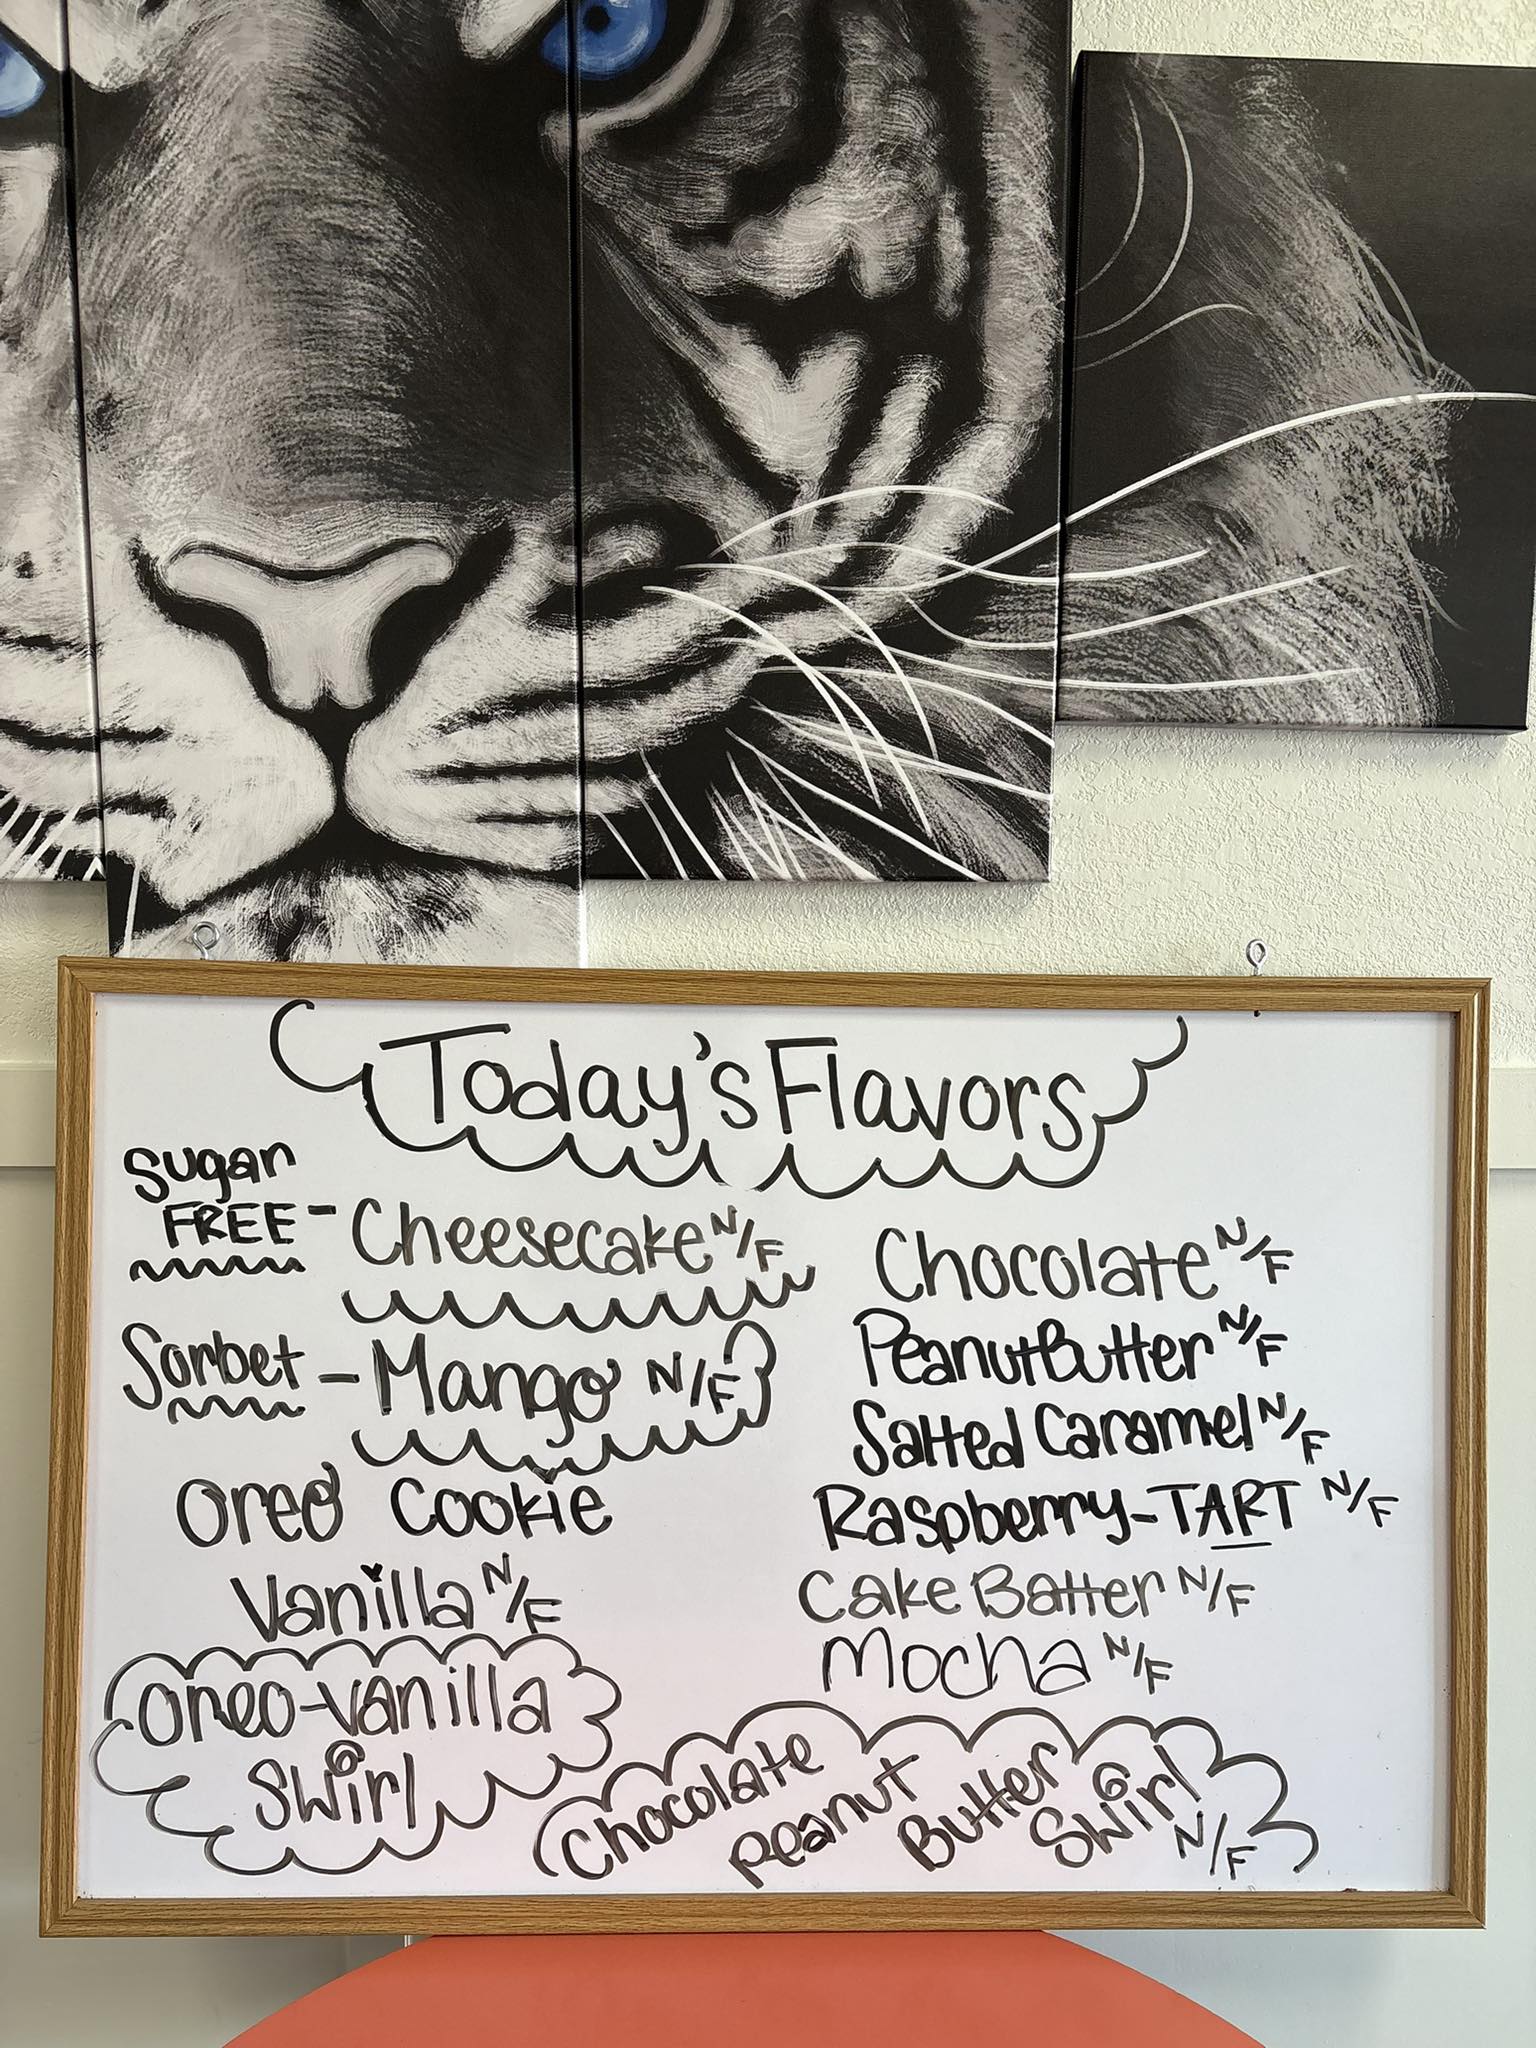 Today's Flavors
Sugar
FREE - Cheesecake N/F
Sorbet - Mango N/F
Oreo Cookie
Vanilla N/F
Oreo-Vanilla
Swirl
Chocolate N/F
Peanut Butter N/F
Salted Caramel N/F
Raspberry-TART N/F
Cake Batter N/F
Mocha N/F
Chocolate Peanut Butter Swirl
N/F